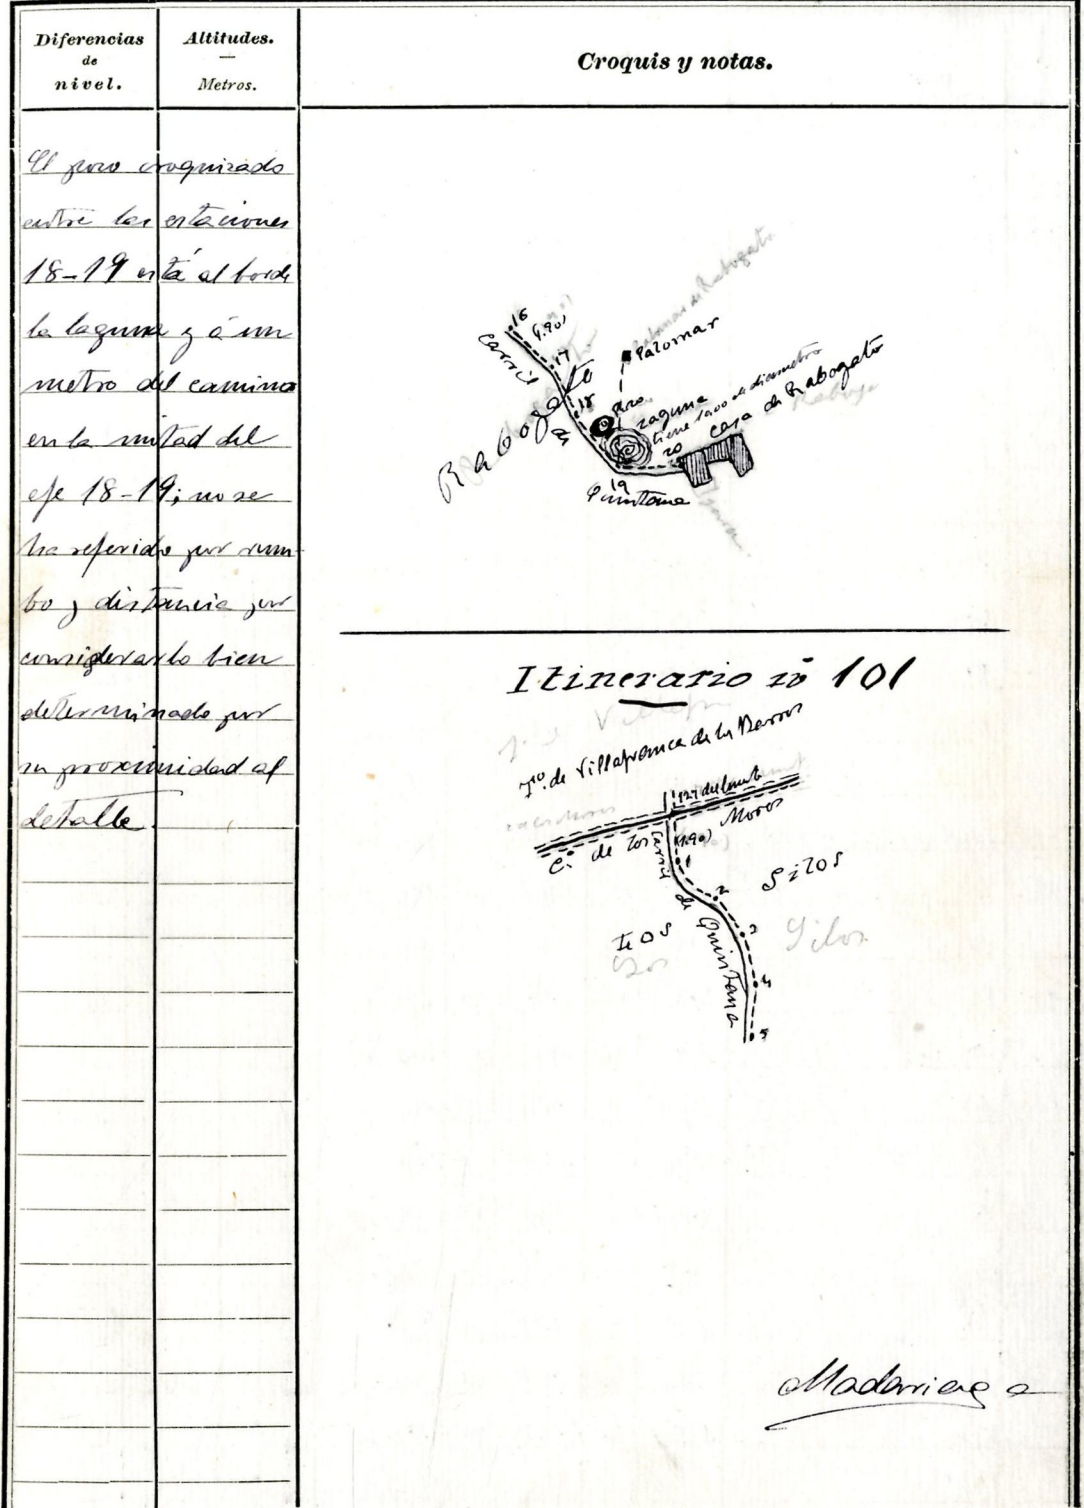 Diferencias
de
nivel.
Altitudes.
Metros.
Croquis y notas.
El pozo croquizado
entre las estaciones
18-19 está al borde
la laguna y á un
metro del camino
en la mitad del
eje 18-19; no se
ha referido por rum-
bo y distancia por
considerarlo bien
determinado por
su proximidad al
detalle.
16
(1.90)
Carril
17
18
de
Rabogato
Palomar de Rabogato
Palomar
Pozo
Laguna
tiene 10 de diametro
20
Casa de Rabogato
19
Quintana
Itinerario nº 101
Tº. de Villafranca de los Barros
121 del
Cº. de los Moros
(1.90)
Carril de Quintana
1
2
3
4
5
Silos
Silos
Madariaga